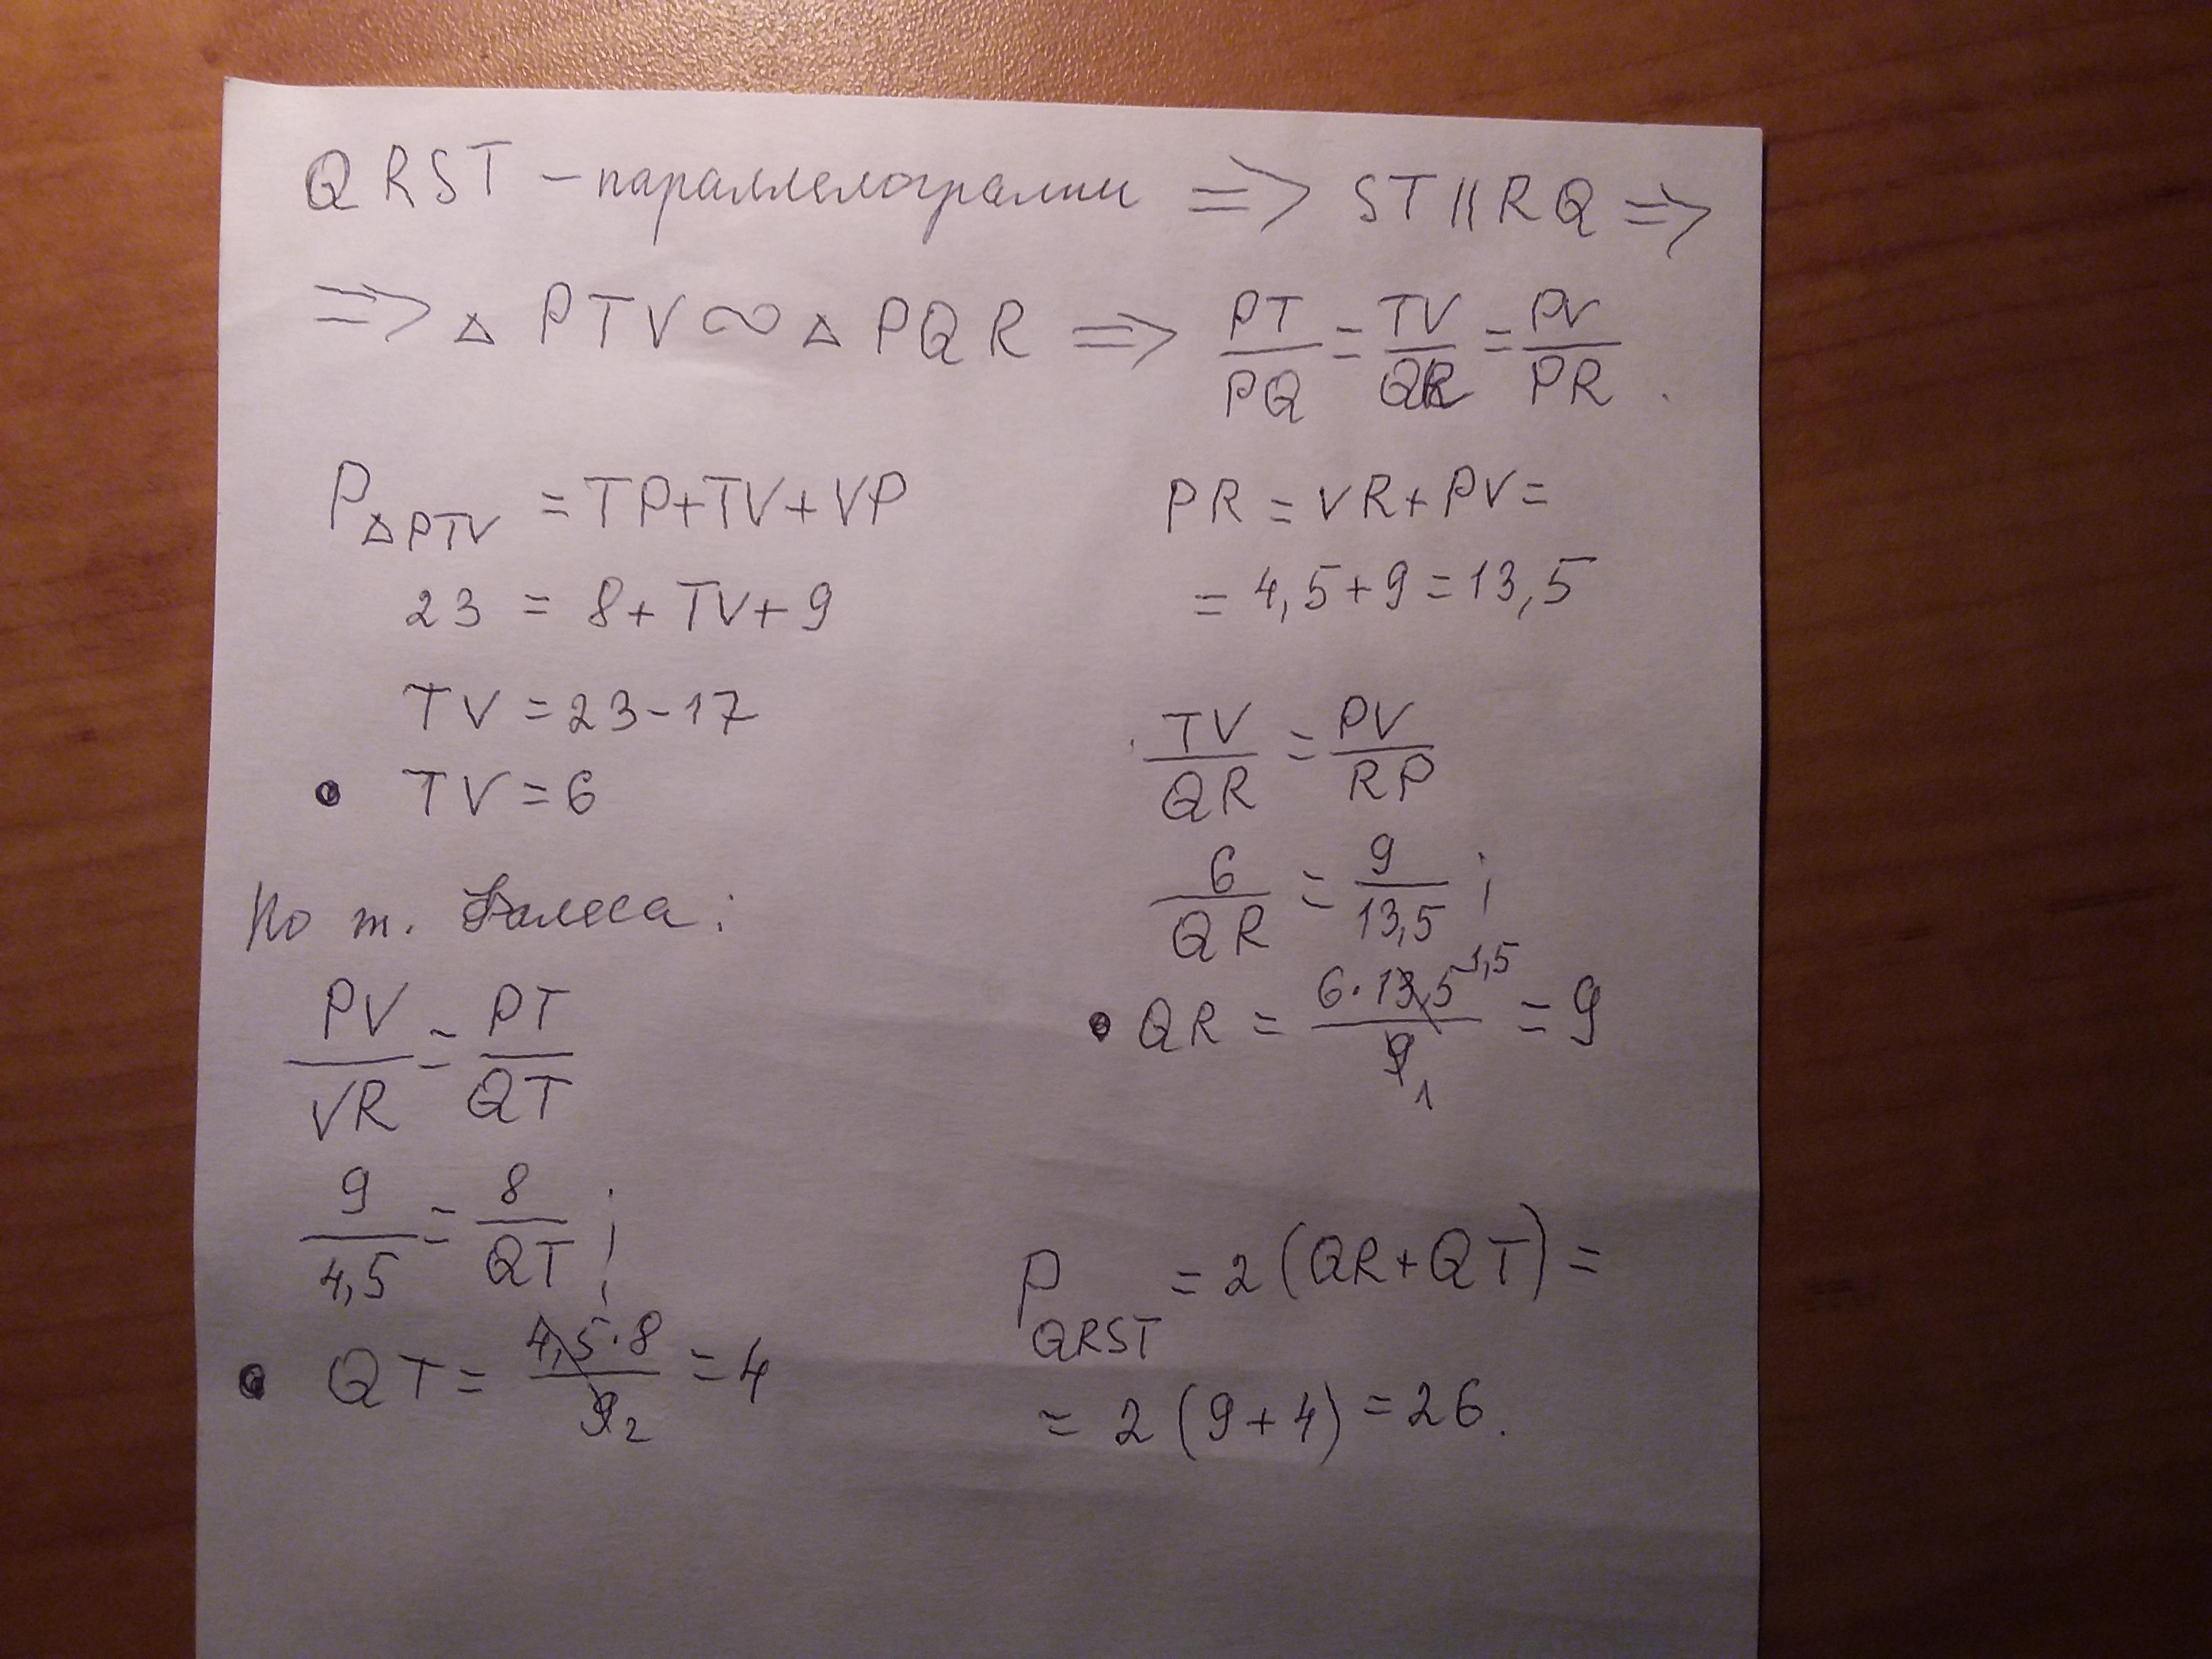 QRST – параллелограмм => ST || RQ =>
=> △ PTV ∞ △ PQR => PT/PQ = TV/QR = PV/PR.
P△PTV = TP+TV+VP
23 = 8+TV+9
TV = 23-17
• TV = 6
По т. Фалеса:
PV/VR = PT/QT
9/4,5 = 8/QT;
• QT = 4,5·8/9 2 = 4
PR = VR+PV =
= 4,5+9 = 13,5
TV/QR = PV/RP
6/QR = 9/13,5;
• QR = 6·13,5 1,5/9 1 = 9
P QRST = 2(QR+QT) =
= 2(9+4) = 26.